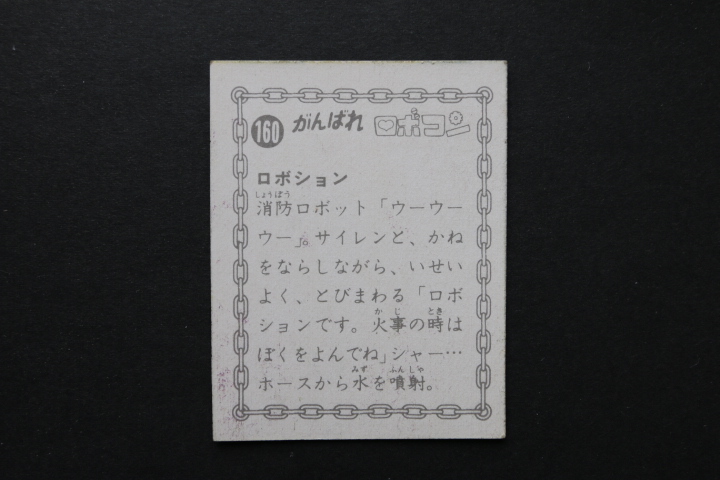 160 がんばれ ロボコン
ロボション
しょうぼう
消防ロボット「ウーウー
ウー」。サイレンと、かね
をならしながら、いせい
よく、とびまわる「ロボ
ションです。火事の時は
かじ とき
ぼくをよんでね」シャー…
ホースから水を噴射。
みず ふんしゃ